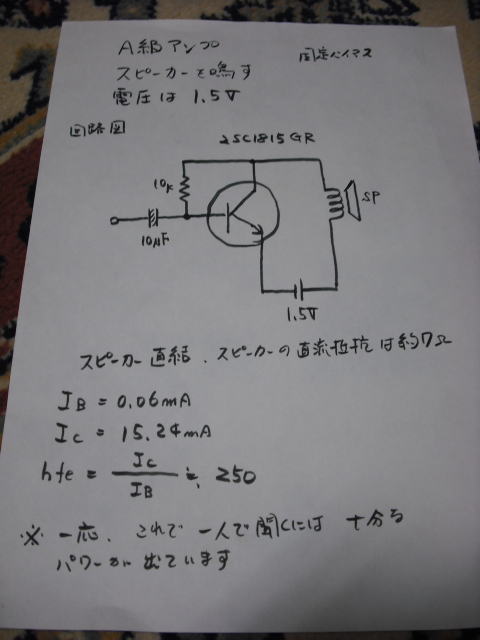 A級アンプ
固定バイアス
スピーカーを鳴す
電圧は 1.5V
回路図
2SC1815GR
10K
10μF
SP
1.5V
スピーカー直結、スピーカーの直流抵抗は約7Ω
IB = 0.06mA
IC = 15.24mA
hfe = IC / IB ≒ 250
※ 一応、これで一人で聞くには十分な
パワーが出ています